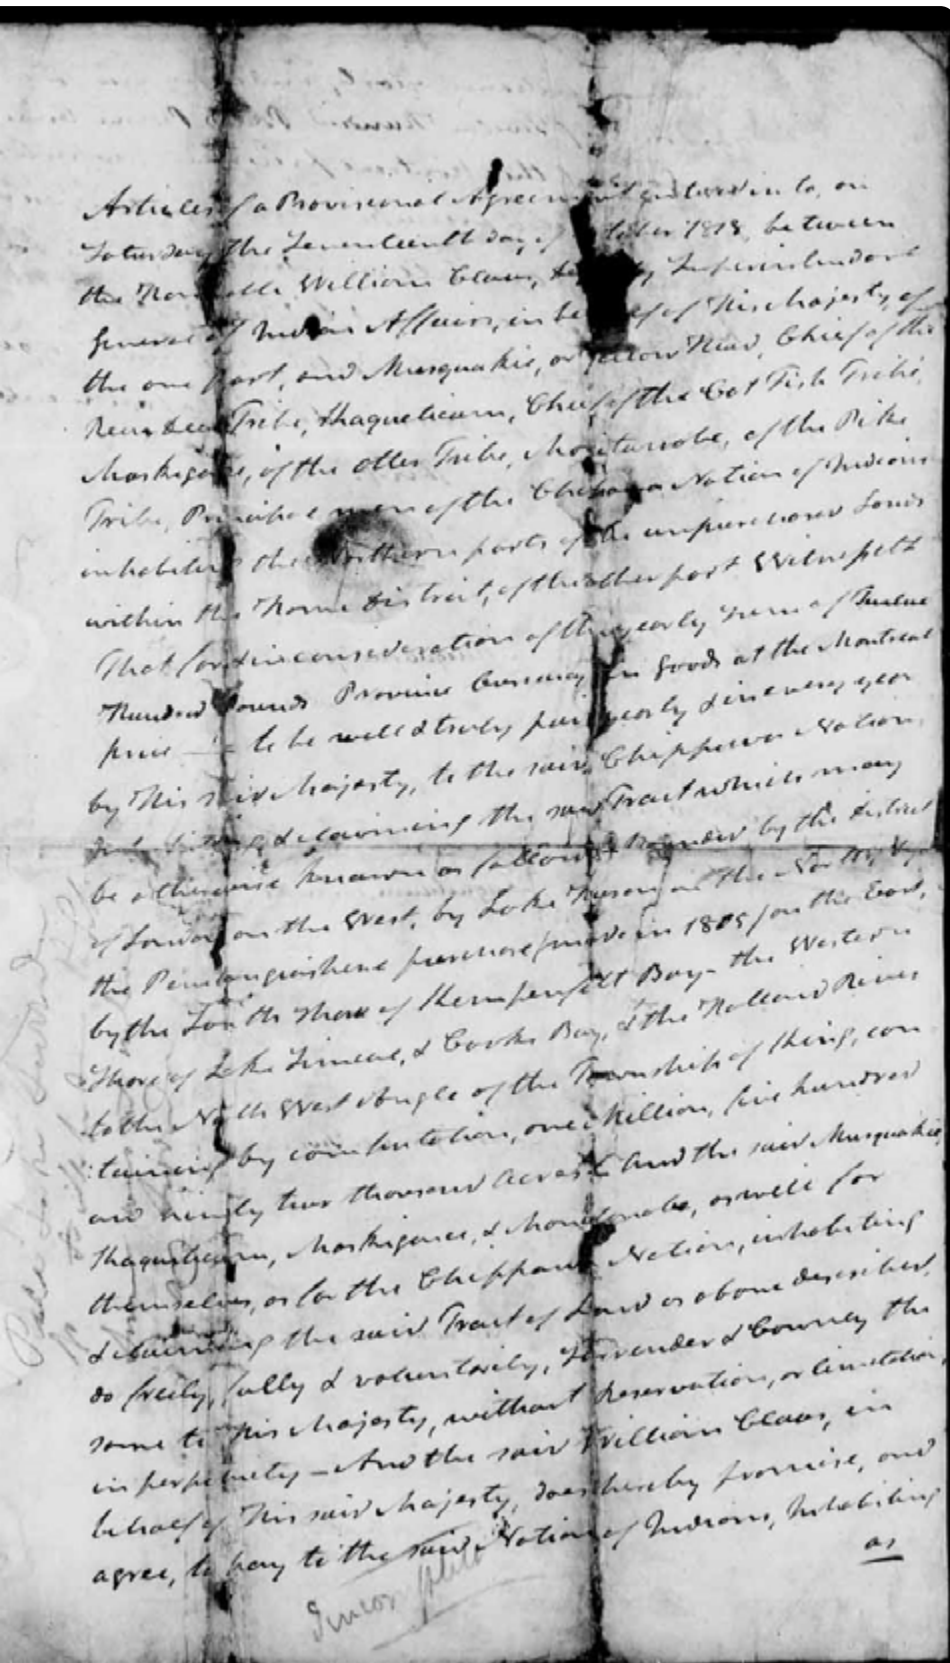 Articles of a Provisional Agreement entered into, on
Saturday, the Seventeenth day of October 1818, between
the Honorable William Claus, Deputy Superintendent
General of Indian Affairs, in behalf of His Majesty, of
the one part, and Musquakie, or Yellow Head, Chief of the
Rein Deer Tribe, Kaqueticum, Chief of the Cat Fish Tribe,
Maskigonce, of the Otter Tribe, Manitonobe, of the Pike
Tribe, Principal men of the Chippawa Nation of Indians
inhabiting the Northern parts of the unpurchased Lands
within the Home District, of the other part Witnesseth
That for & in consideration of the yearly Sum of Twelve
Hundred Pounds Province Currency in Goods at the Montreal
price to be well & truly paid yearly & in every year
by His said Majesty, to the said Chippawa Nation,
inhabiting & claiming the said Tract which may
be otherwise known as follows, Bounded by the District
of London on the West, by Lake Huron on the North, by
the Penetanguishene purchase (made in 1815) on the East,
by the South Shore of Kempenfelt Bay - the Western
Shore of Lake Simcoe, & Cooks Bay, & the Holland River
to the North West Angle of the Township of King, con
:taining by computation, one Million, five hundred
and ninety two thousand acres And the said Musquakie,
Kaqueticum, Maskigonce, & Manitonobe, as well for
themselves, as for the Chippawa Nation, inhabiting
& claiming the said Tract of Land as above described,
do freely, fully & voluntarily, Surrender & Convey the
same to His Majesty, without Reservation, or limitation,
in perpetuity - And the said William Claus, in
behalf of His said Majesty, does hereby promise, and
agree, to pay to the said Nation of Indians, Inhabiting
as
Incomplete